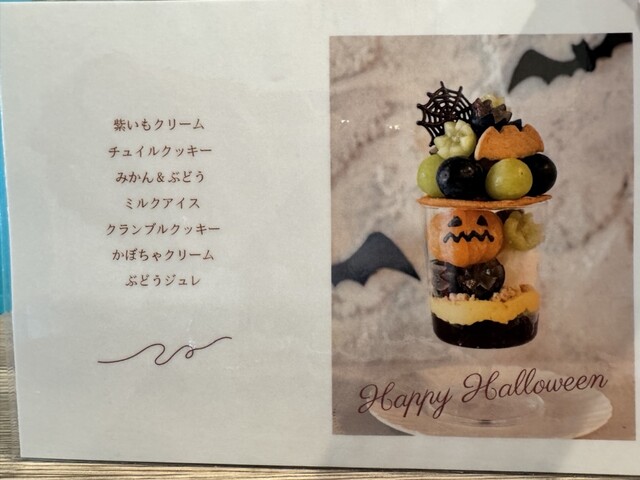 紫いもクリーム
チュイルクッキー
みかん&ぶどう
ミルクアイス
クランブルクッキー
かぼちゃクリーム
ぶどうジュレ
Happy Halloween